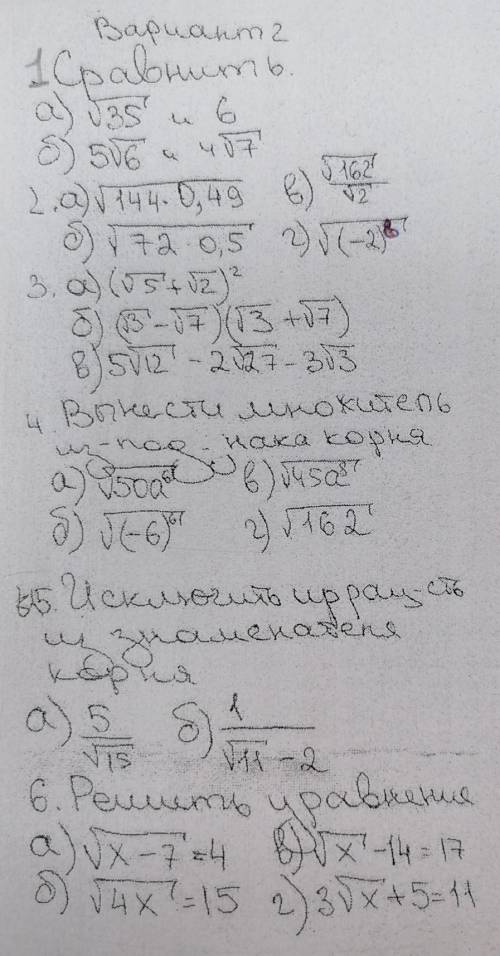 Вариант 2
1 Сравнить.
а) √35 и 6
б) 5√6 и 4√7
2. а) √144·0,49 в) √162/√2
б) √72·0,5 г) √(-2)⁸
3. а) (√5+√2)²
б) (√3-√7)(√3+√7)
в) 5√12 - 2√27 - 3√3
4 Вынести множитель
из-под нака корня
а) √50a⁶ в) √45a³
б) √(-6)⁶ г) √162
5. Исключить иррац-сть
из знаменателя
корня
а) 5/√15 б) 1/(√11-2)
6. Решить уравнения
а) √x-7=4 в) √x-14=17
б) √4x=15 г) 3√x+5=11